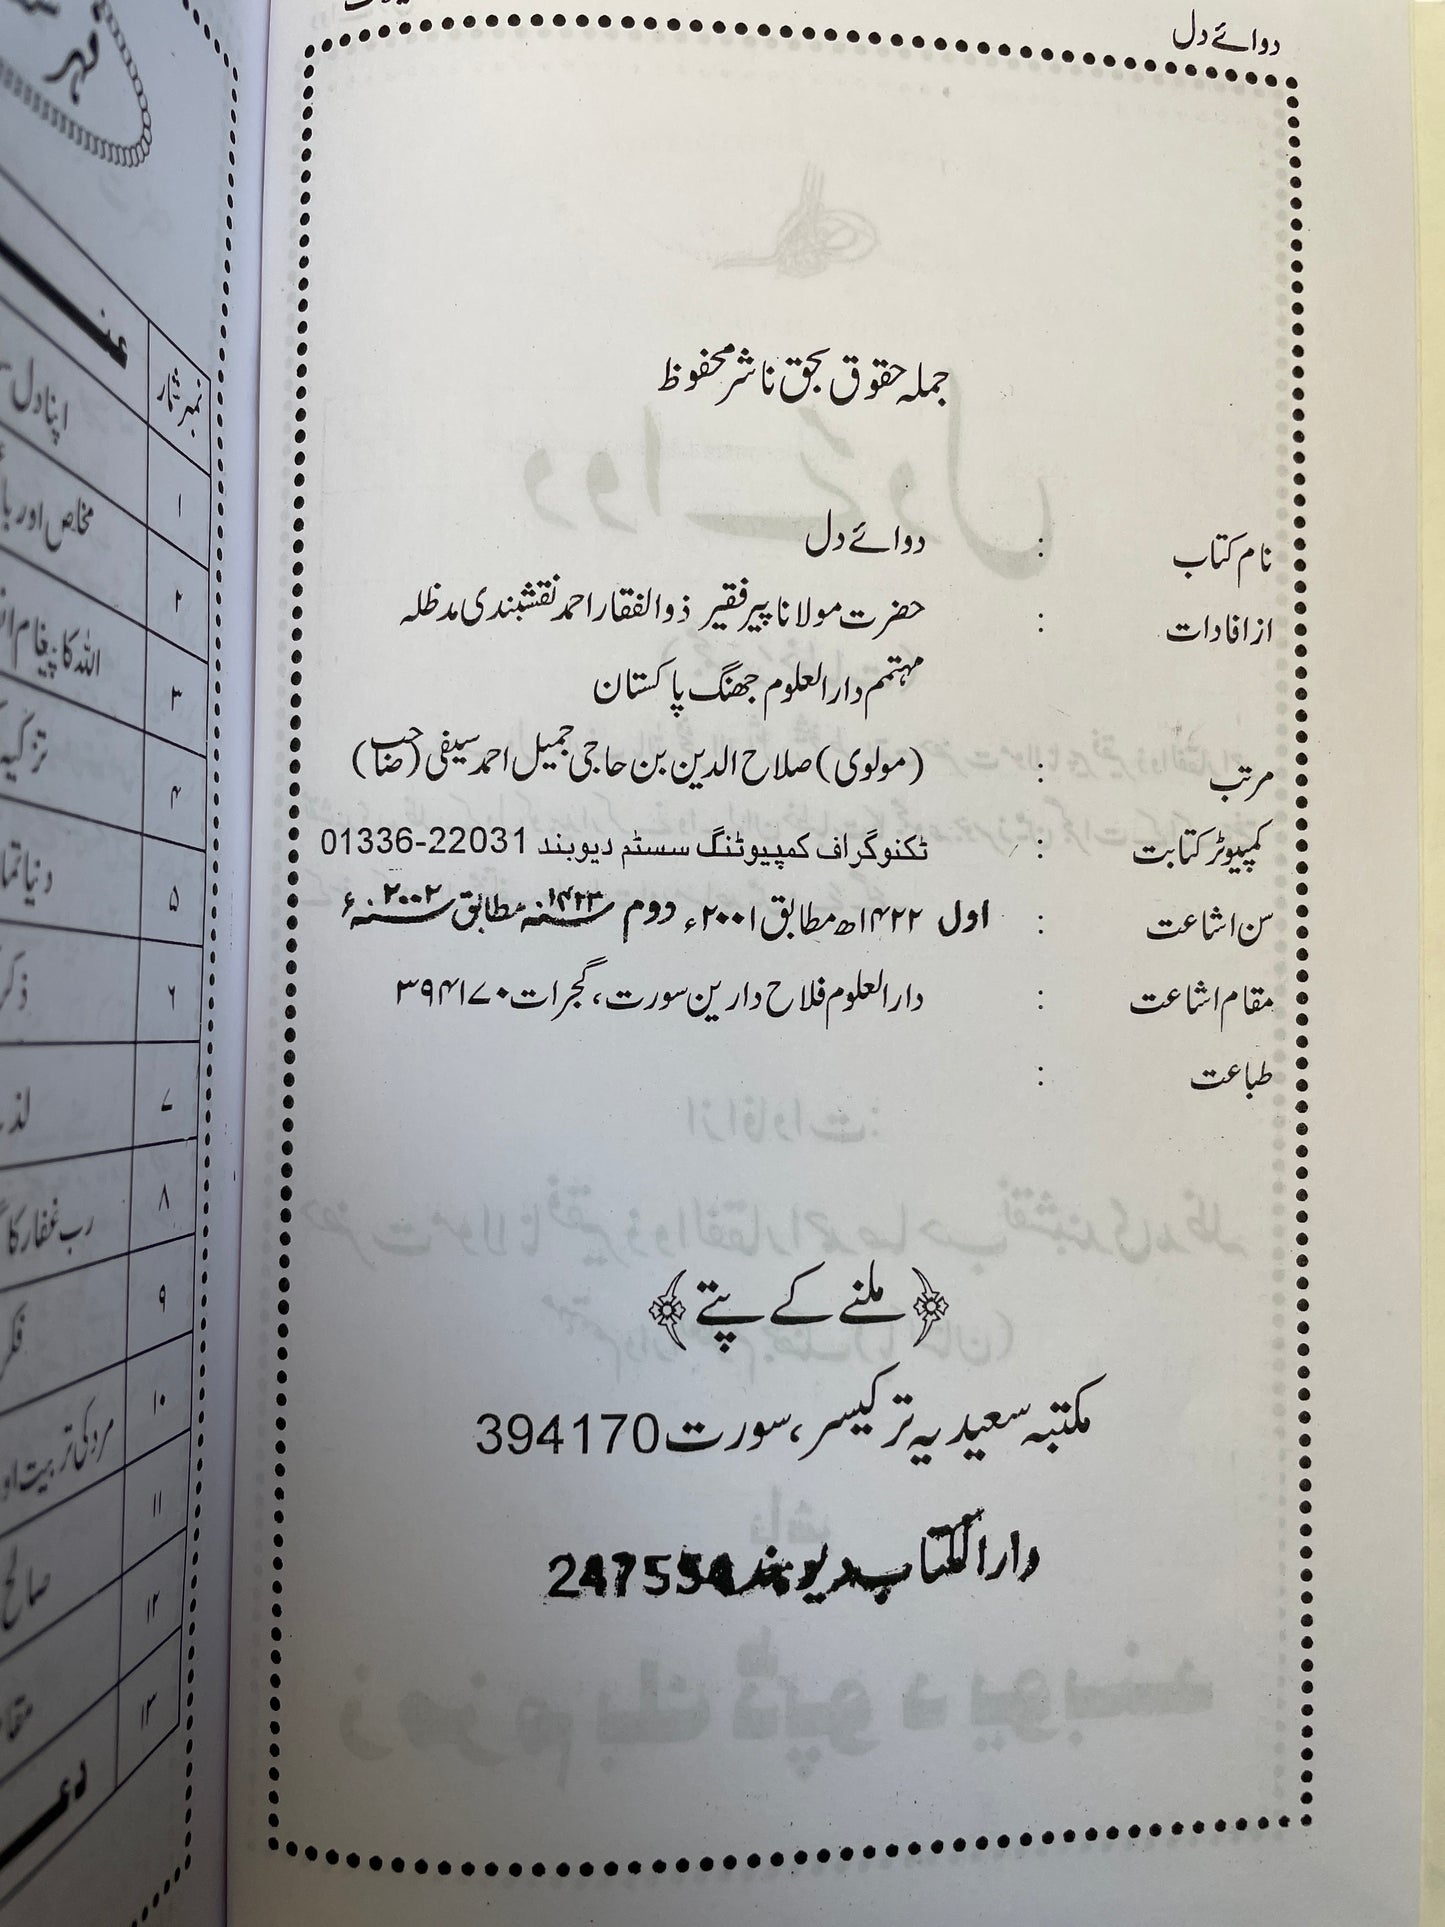 دوائے دل
جملہ حقوق بحق ناشر محفوظ
نام کتاب : دوائے دل
از افادات : حضرت مولانا پیر فقیر ذوالفقار احمد نقشبندی مدظلہ
مہتمم دارالعلوم جھنگ پاکستان
مرتب : (مولوی) صلاح الدین بن حاجی جمیل احمد سیفی (صاحب)
کمپیوٹر کتابت : ٹکنوگراف کمپیوٹنگ سسٹم دیوبند 01336-22031
سن اشاعت : اول ۱۴۲۲ھ مطابق ۲۰۰۱ء دوم ۱۴۲۳ھ مطابق ۲۰۰۲ء
مقام اشاعت : دارالعلوم فلاح دارین سورت، گجرات ۳۹۴۱۷۰
طباعت :
ملنے کے پتے
مکتبہ سعیدیہ ترکیسر، سورت 394170
دارالکتاب دیوبند 247554
نمبر شمار
۱ اپنا دل
۲ مخلص اور
۳ اللہ کا پیغام
۴ تزکیہ
۵ دنیا
۶ ذکر
۷
۸ رب غفار کا
۹ فکر
۱۰ مرد کی تربیت
۱۱ صالح
۱۲
۱۳